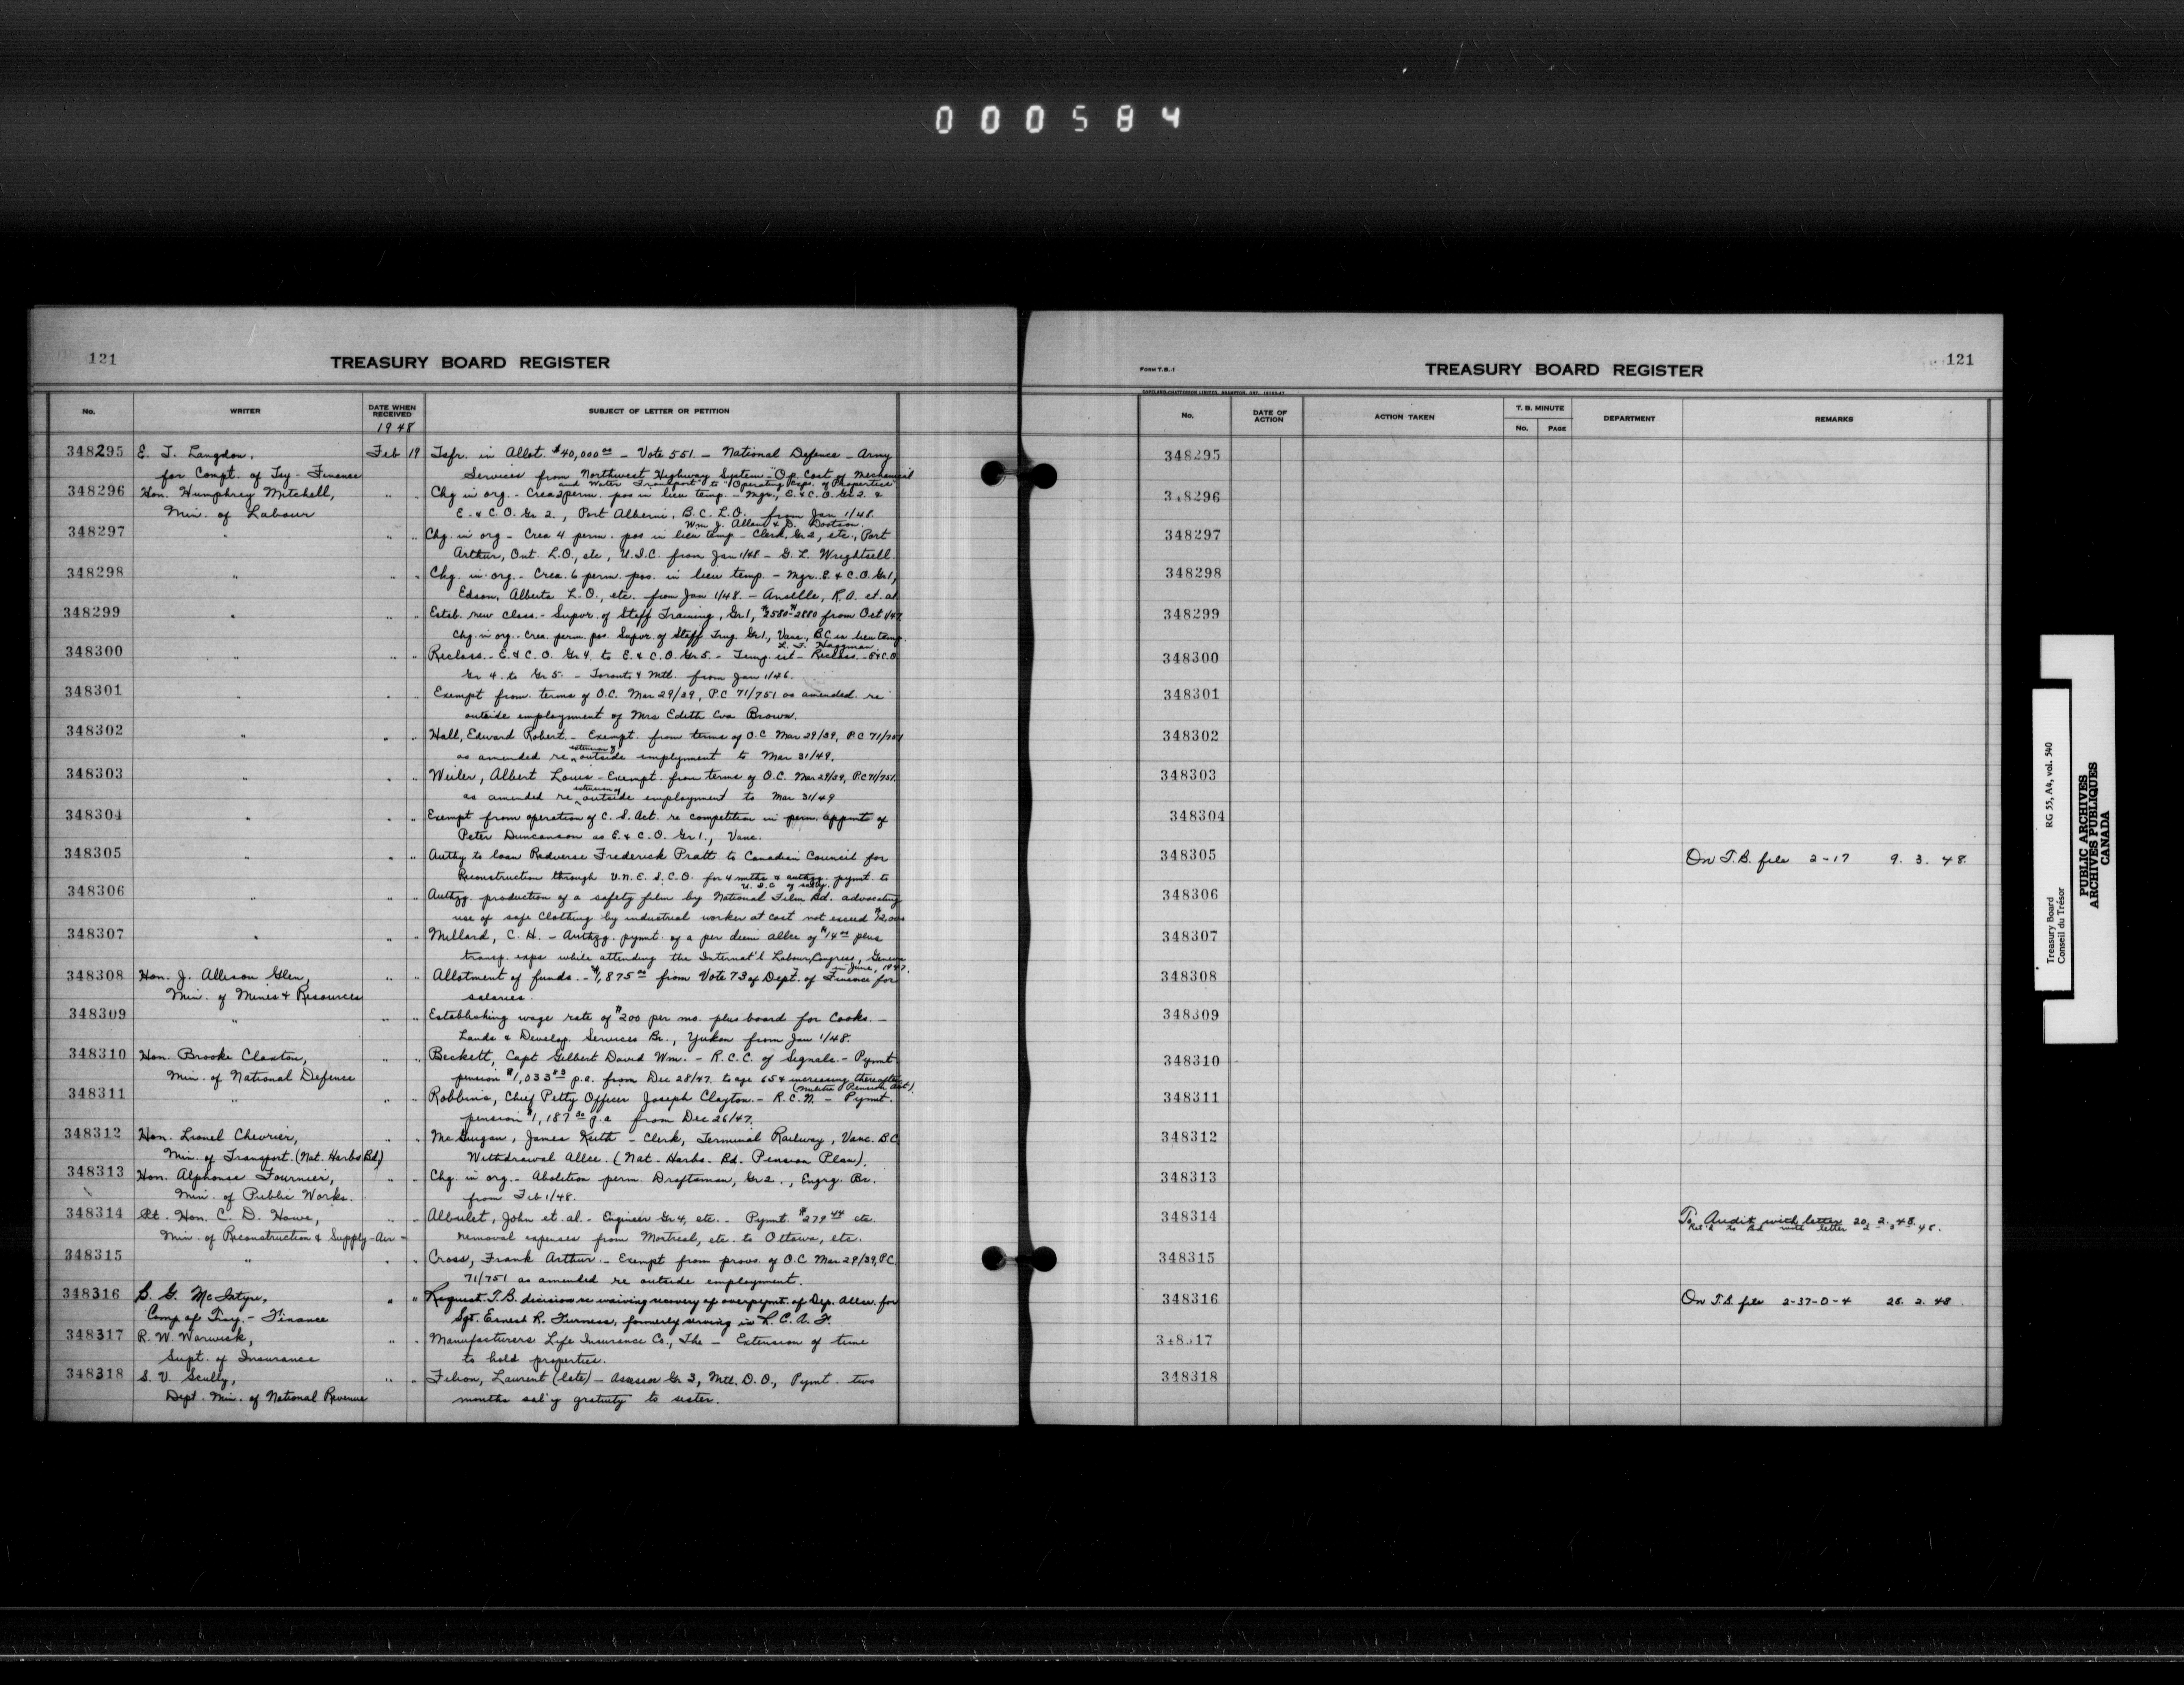 000584
121
TREASURY BOARD REGISTER
No. WRITER DATE WHEN RECEIVED SUBJECT OF LETTER OR PETITION
1948
348295 E. T. Langdon, Feb 19 Tsfr. in Allot. $40,000.00 - Vote 551 - National Defence - Army
for Compt. of Tsy - Finance Services from Northwest Highway System "Op. Cost of Mechanical
and Water Transport" to "Operating Exps. of Properties"
348296 Hon. Humphrey Mitchell, " " Chg in org. - Crea 2 perm. pos in lieu temp. - Mgr., E. & C. O. Gr 2. &
Min. of Labour E. & C. O. Gr 2., Port Alberni, B.C. L.O. from Jan 1/48.
Wm J. Allan & D. Dootson.
348297 " " " Chg. in org - Crea 4 perm. pos in lieu temp - Clerk, Gr 2, etc., Port
Arthur, Ont. L.O., etc, U.I.C. from Jan 1/48 - G. L. Wrightsell.
348298 " " " Chg. in org. - Crea. 6 perm. pos. in lieu temp. - Mgr. E. & C. O. Gr 1,
Edson, Alberta L.O., etc. from Jan 1/48. - Anselle, R.A. et. al
348299 " " " Estab. new class. - Supvr. of Staff Training, Gr 1, $2580-$2880 from Oct 1/47
Chg. in org. - Crea. perm. pos. Supvr. of Staff Trng. Gr 1., Vanc., B.C. in lieu temp.
348300 " " " Reclass. - E. & C. O. Gr 4. to E. & C. O. Gr 5. - Temp. est - Reclass. - E & C.O.
Gr 4. to Gr 5. - Toronto & Mtl. from Jan 1/46.
348301 " " " Exempt from terms of O.C. Mar 29/39, P.C 71/751 as amended re
outside employment of Mrs Edith Eva Brown.
348302 " " " Hall, Edward Robert. - Exempt. from terms of O.C Mar 29/39, P.C 71/751
as amended re extension of outside employment to Mar 31/49.
348303 " " " Weiler, Albert Louis - Exempt. from terms of O.C. Mar 29/39, P.C 71/751.
as amended re extension of outside employment to Mar 31/49
348304 " " " Exempt from operation of C. S. Act. re competition in perm. appmt of
Peter Duncanson as E. & C. O. Gr 1., Vanc.
348305 " " " Authy to loan Radverse Frederick Pratt to Canadian Council for
Reconstruction through U.N.E.S.C.O. for 4 mths & authzg. pymt. to
U.I.C of salty.
348306 " " " Authzg. production of a safety film by National Film Bd. advocating
use of safe clothing by industrial worker at cost not exceed $12,000
348307 " " " Millard, C. H. - Authzg. pymt. of a per diem allce of $14.00 plus
transp. exps while attending the Internat'l Labour Congress, Geneva
in June, 1947.
348308 Hon. J. Allison Glen, " " Allotment of funds. - $1,875.00 from Vote 73 of Dept. of Finance for
Min. of Mines & Resources salaries.
348309 " " " Establishing wage rate of $200 per mo. plus board for Cooks. -
Lands & Develop. Services Br., Yukon from Jan 1/48.
348310 Hon. Brooke Claxton, " " Beckett, Capt Gilbert David Wm. - R.C.C. of Signals. - Pymt
Min. of National Defence pension $1,033.83 p.a. from Dec 28/47. to age 65 & increasing thereafter
(Militia Pension Act)
348311 " " " Robbins, Chief Petty Officer Joseph Clayton. - R.C.N. - Pymt.
pension $1,187.30 p.a from Dec 26/47.
348312 Hon. Lionel Chevrier, " " McGuigan, James Keith - Clerk, Terminal Railway, Vanc. B.C
Min. of Transport. (Nat. Harbs Bd) Withdrawal Allce. (Nat. Harbs. Bd. Pension Plan).
348313 Hon. Alphonse Fournier, " " Chg. in org. - Abolition perm. Draftsman, Gr 2., Engrg. Br.
Min. of Public Works. from Feb 1/48.
348314 Rt. Hon. C. D. Howe, " " Albulet, John et. al. - Engineer Gr 4, etc. - Pymt. $279.44 etc.
Min. of Reconstruction & Supply - Air - removal expenses from Montreal, etc. to Ottawa, etc.
348315 " " " Cross, Frank Arthur. - Exempt from provs. of O.C Mar 29/39, P.C.
71/751 as amended re outside employment.
348316 B. G. McIntyre, " " Request T.B. decision re waiving recovery of overpymt. of Dep. Allce. for
Comp. of Trsy. - Finance Sgt. Ernest R. Furness, formerly serving in R.C.A.F.
348317 R. W. Warwick, " " Manufacturers Life Insurance Co., The - Extension of time
Supt. of Insurance to hold properties.
348318 S. V. Scully, " " Filion, Laurent (late) - Assessor Gr 3, Mtl. D.O., Pymt. two
Dept. Min. of National Revenue months sal'y gratuity to sister.
FORM T.B.-1
TREASURY BOARD REGISTER
121
No. DATE OF ACTION ACTION TAKEN T. B. MINUTE No. PAGE DEPARTMENT REMARKS
348295
348296
348297
348298
348299
348300
348301
348302
348303
348304
348305 On T.B. file 2-17 9. 3. 48.
348306
348307
348308
348309
348310
348311
348312
348313
348314 To Audit with letter 20. 2. 48.
348315
348316 On T.B. file 2-37-0-4 26. 2. 48
348317
348318
Treasury Board RG 55, A4, vol. 540
Conseil du Trésor
PUBLIC ARCHIVES
ARCHIVES PUBLIQUES
CANADA